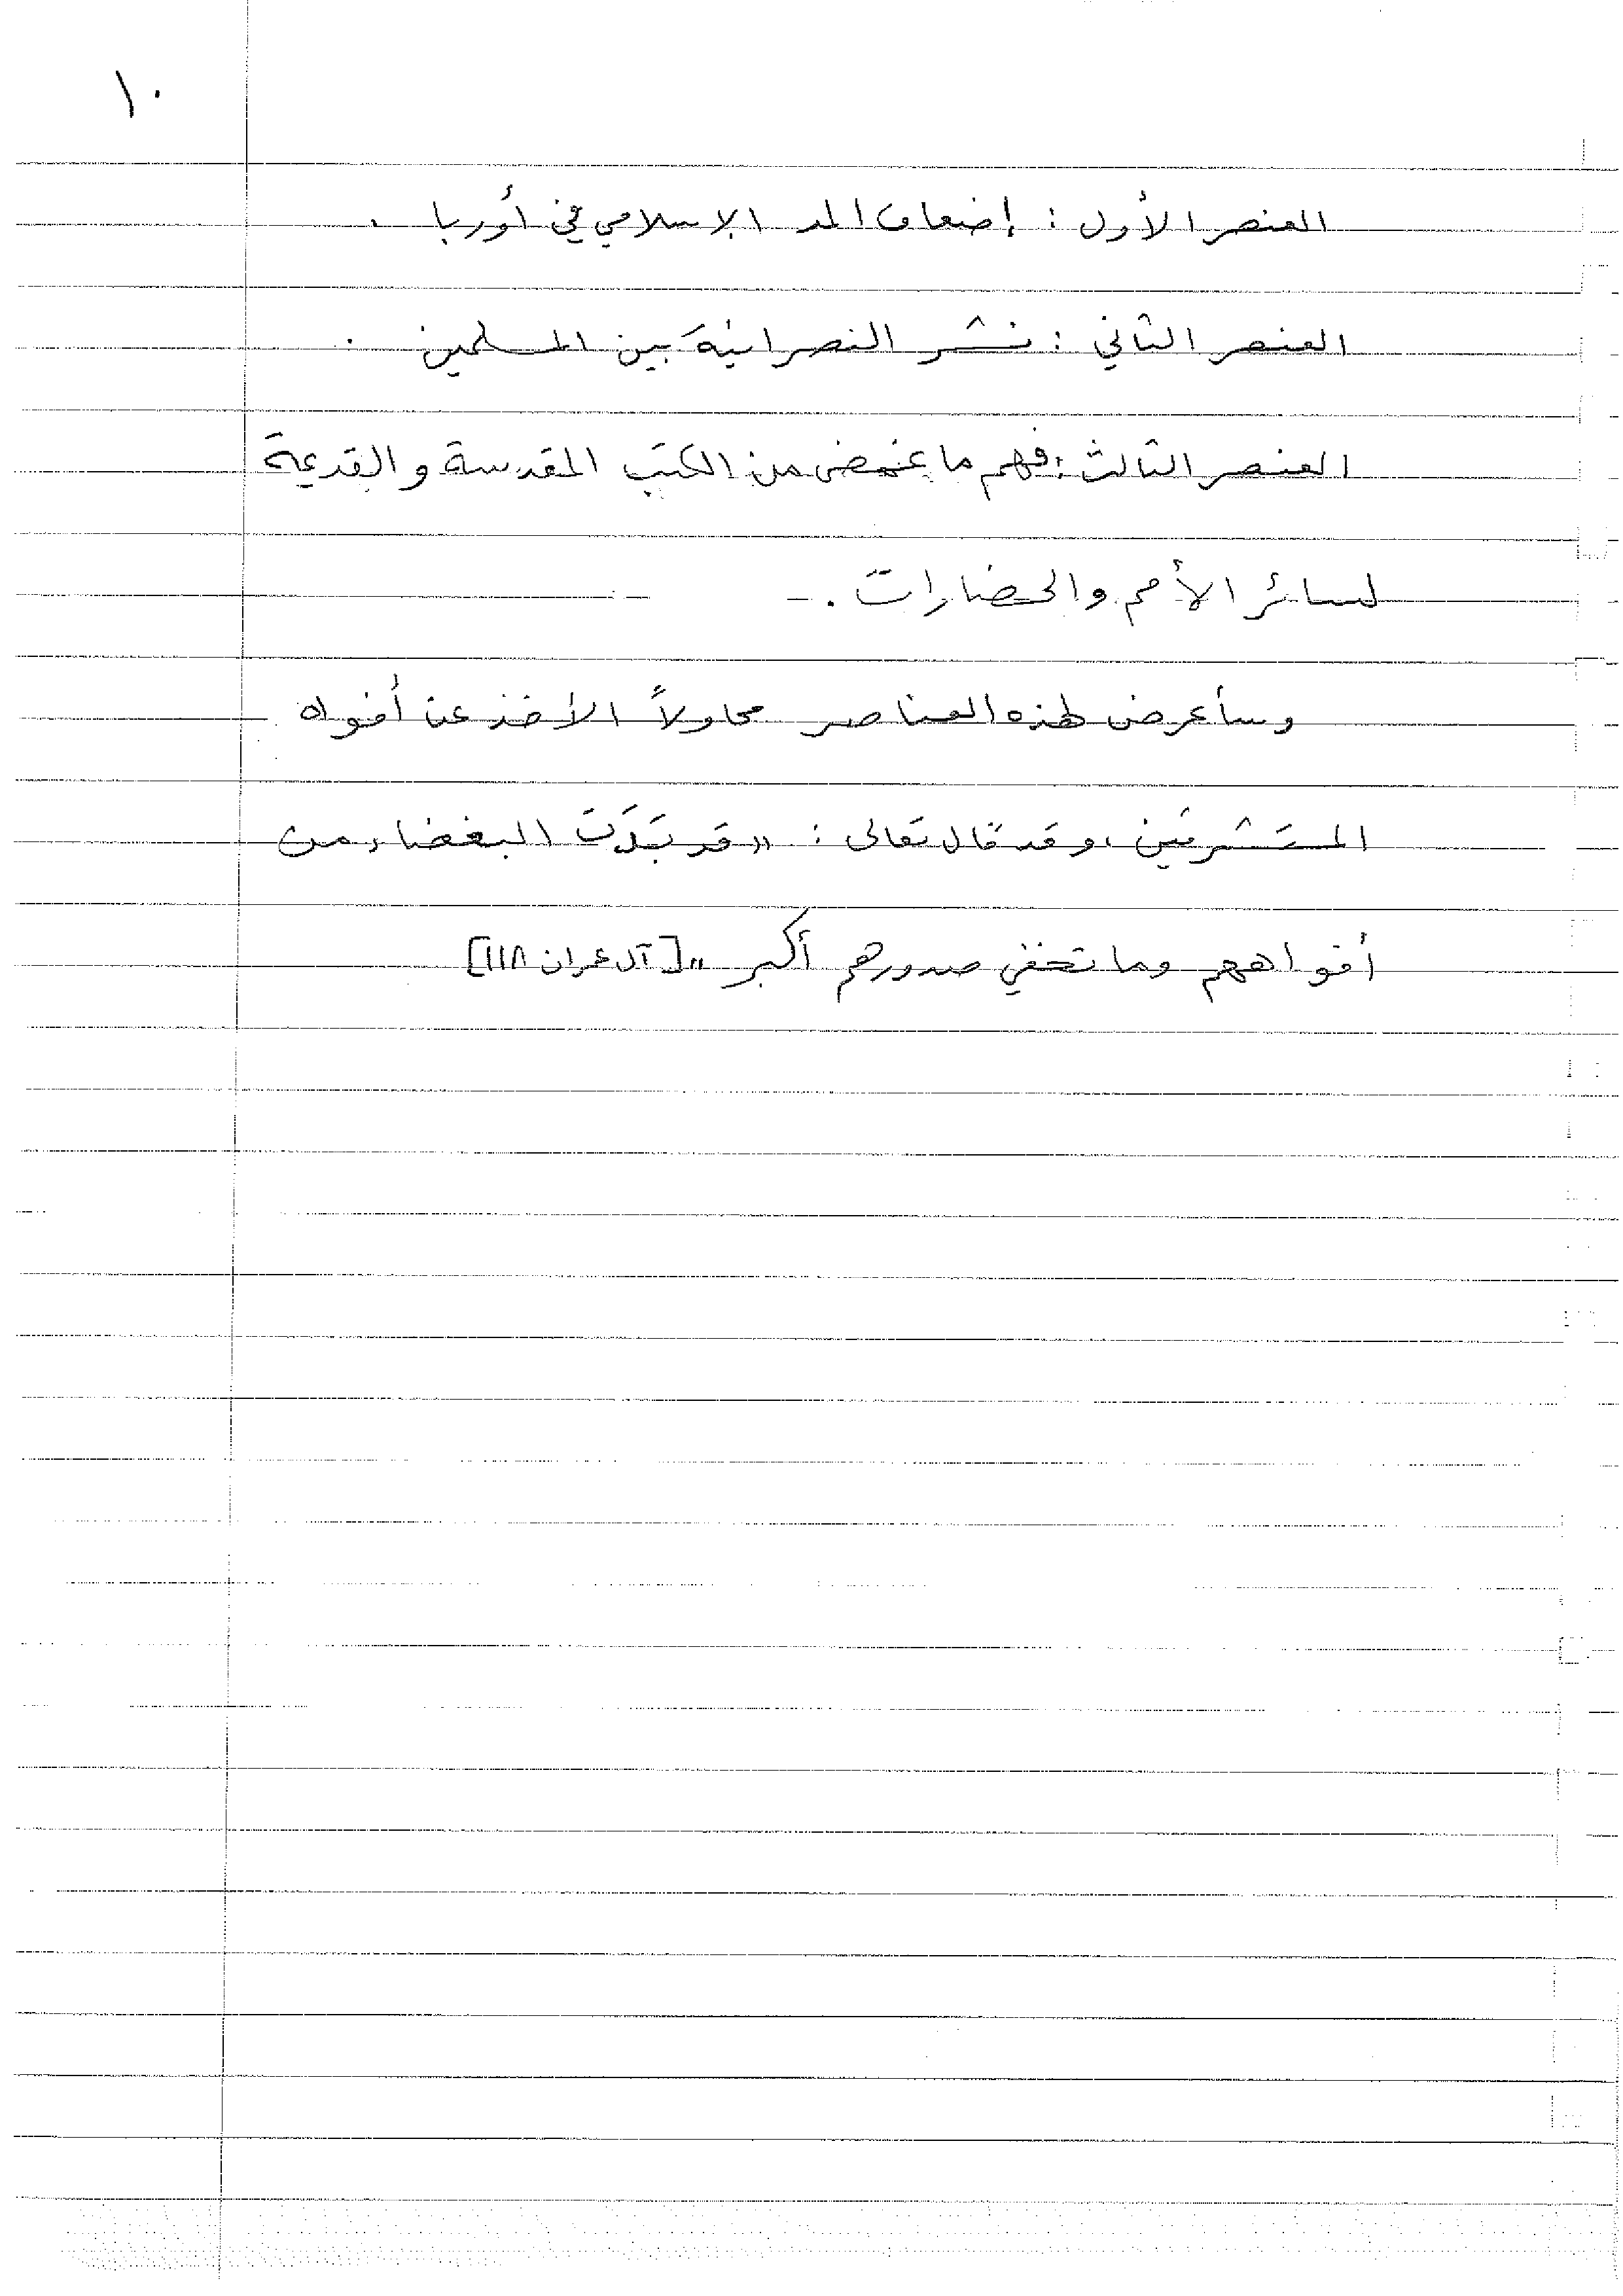 ١٠
العنصر الأول : إضعاف المد الإسلامي في أوربا .
العنصر الثاني : نشر النصرانية بين المسلمين .
العنصر الثالث : فهم ما غمض من الكتب المقدسة والقديمة
لسائر الأمم والحضارات .
وسأعرض لهذه العناصر محاولاً الأخذ عن أفواه
المستشرقين ، وقد قال تعالى : " قد بَدَت البغضاء من
أفواههم وما تخفي صدورهم أكبر " [ آل عمران ١١٨ ]